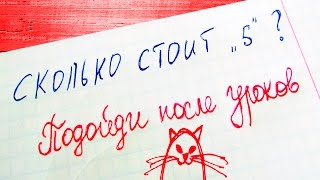 СКОЛЬКО СТОИТ „5“?
Подойди после уроков